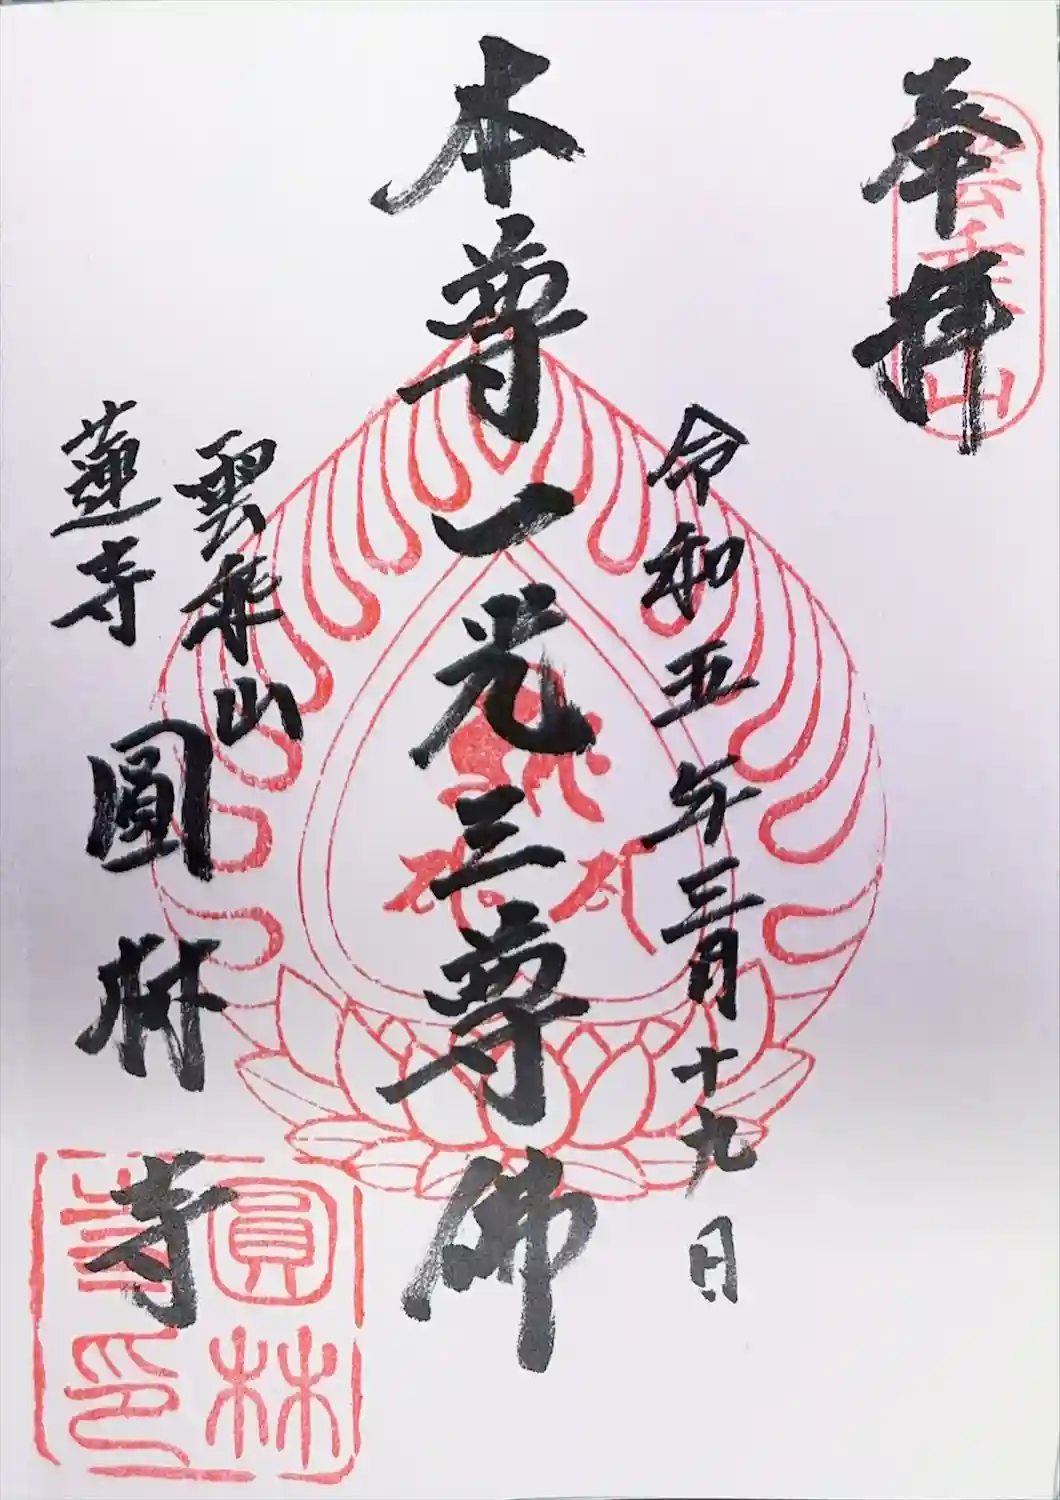 奉拝
雲乗山
令和五年三月十九日
本尊一光三尊佛
雲乗山
蓮寺
圓林寺
圓林
寺印